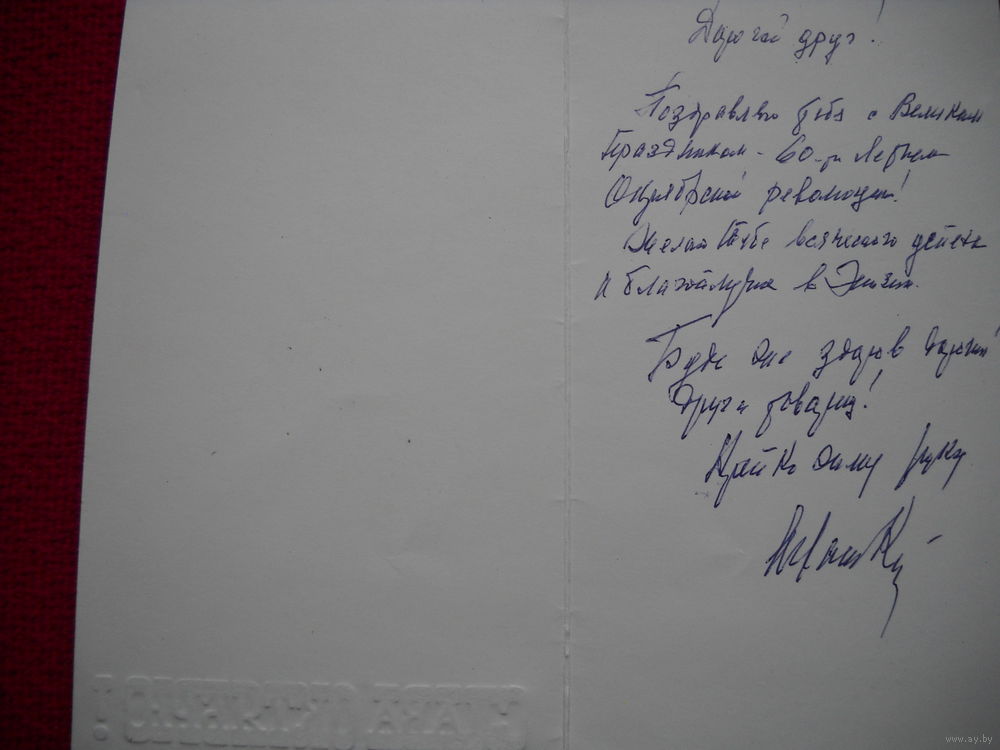 Дорогой друг!
Поздравляю тебя с Великим
Праздником - 60-ти летием
Октябрьской революции!
Желаю Тебе всяческого успеха
и благополучия в Жизни.
Будь же здоров дорогой
друг и товарищ!
Крепко жму руку
www.ay.by